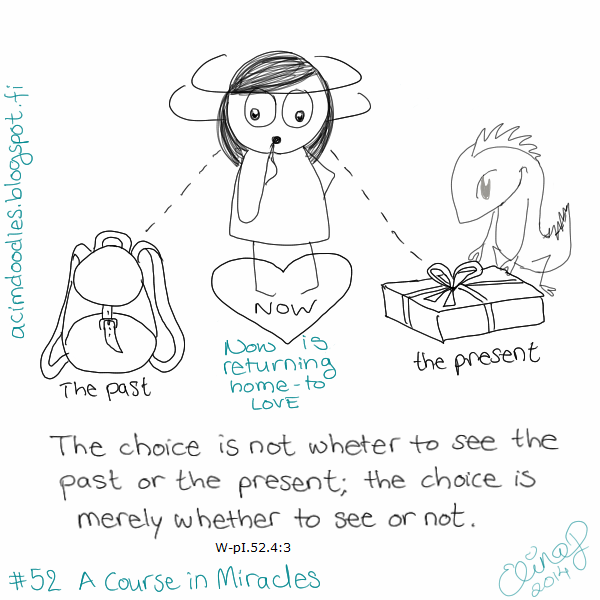 acimdoodles.blogspot.fi
NOW
The past
Now is
returning
home-to
LOVE
the present
The choice is not wheter to see the
past or the present; the choice is
merely whether to see or not.
W-pI.52.4:3
#52 A Course in Miracles
2014